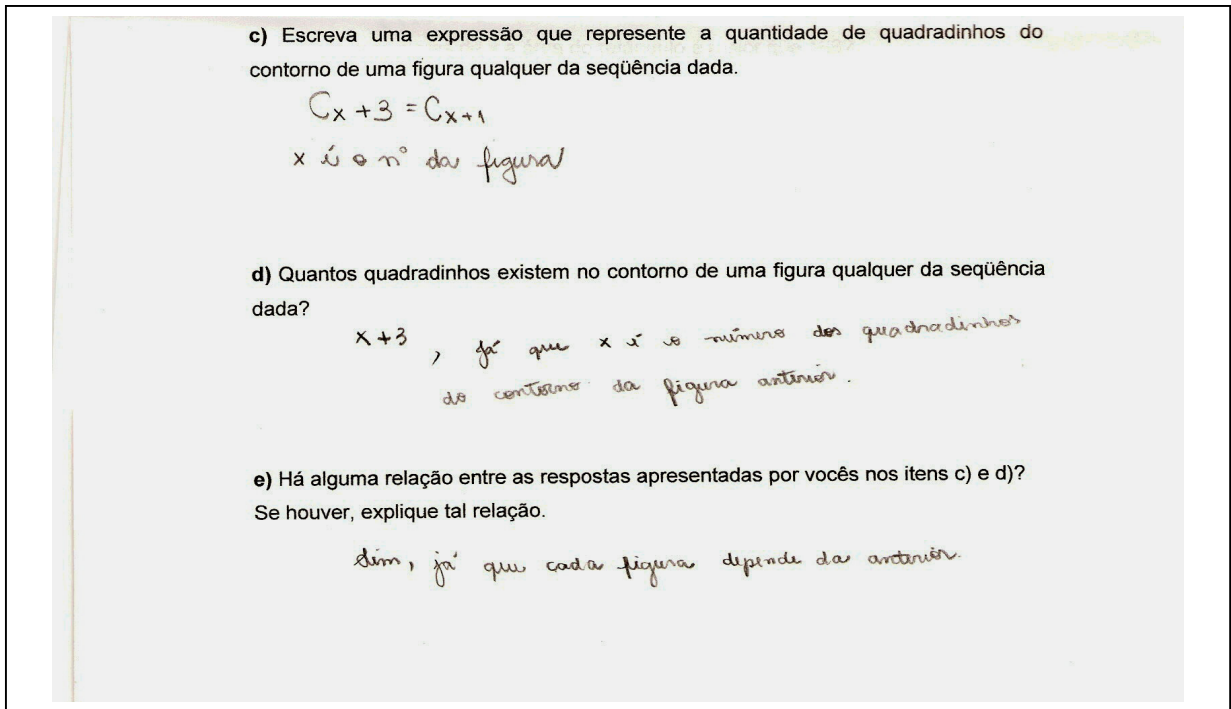 c) Escreva uma expressão que represente a quantidade de quadradinhos do
contorno de uma figura qualquer da seqüência dada.
Cx + 3 = Cx+1
x é o nº da figura
d) Quantos quadradinhos existem no contorno de uma figura qualquer da seqüência
dada?
x + 3 , já que x é o número dos quadradinhos
do contorno da figura anterior.
e) Há alguma relação entre as respostas apresentadas por vocês nos itens c) e d)?
Se houver, explique tal relação.
Sim, já que cada figura depende da anterior.